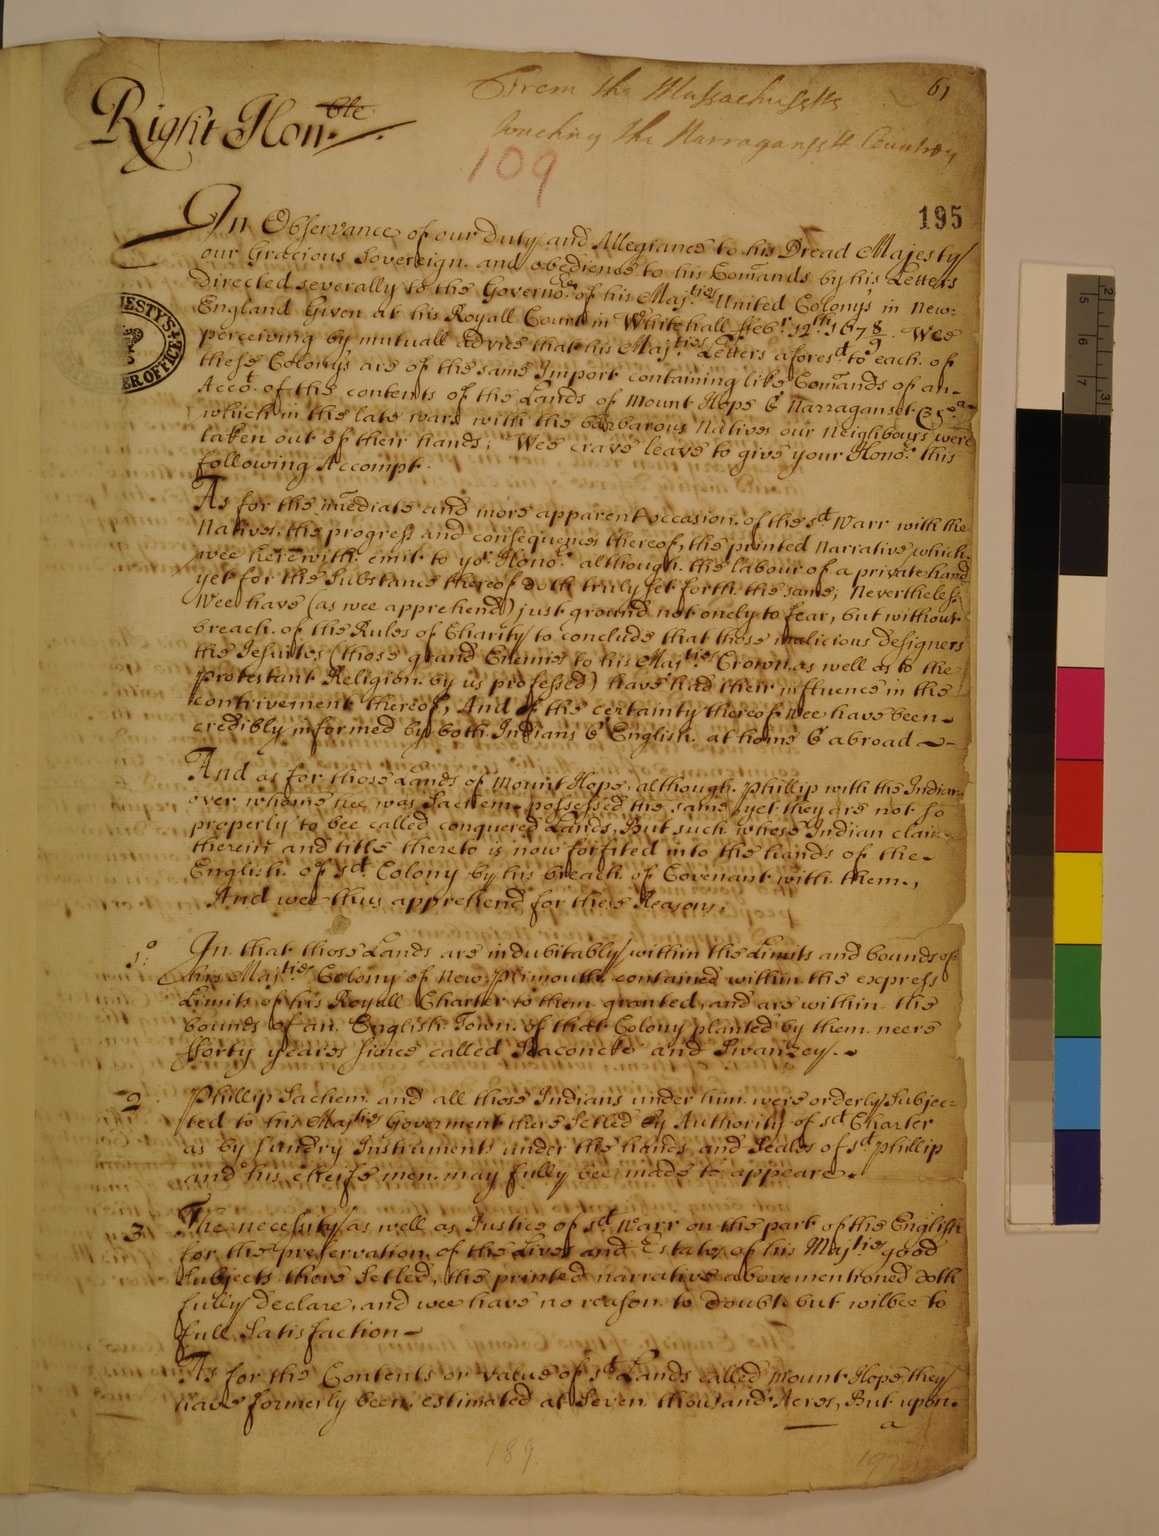 From the Massachusetts
touching the Narragansett Country
61
Right Hon.ble
109
195
In Observance of our duty and Allegiance to his Dread Majesty
our Gracious Sovereign. and obedience to his Comands by his Letters
directed severally to the Governo.rs of his Maj.ties United Colonys in New-
England Given at his Royall Court in Whitehall ffeb.r 12.th 1678/9. Wee
perceiving by mutuall advice that his Maj.ties Letters aforesd to each. of
these Colonys are of the same Import containing like Comands of an-
Accot. of the contents of the Lands of Mount Hope & Narraganset &c.a
which in the late warr with the barbarous Natives our Neighbours were
taken out of their hands; Wee crave leave to give your Hono.rs this
following Accompt.
As for the imediate and more apparent occasion. of the sd Warr with the
Natives, the progress and consequences thereof, the printed Narrative which
wee herewith. emit to yo.r Hono.rs although. the labour of a private hand
yet for the Substance thereof doth truly set forth. the same; Nevertheless
Wee have (as wee apprehend) just ground not onely to fear, but without
breach. of the Rules of Charity to conclude that those malicious designers
the Jesuites (those grand Enemies to his Maj.ties Crown. as well as to the
protestant Religion. by us professed) have had their influence in the
contrivement thereof, And of the certainty thereof wee have been-
credibly informed by both. Indians & English. at home & abroad
And as for those Lands of Mount Hope, although. Phillip with the Indians
over whome hee was Sachem. possessed the same, yet they are not so
properly to bee called conquered Lands, But such whose Indian claime
therein and title thereto is now forfited into the hands of the-
English. of sd. Colony by his breach. of Covenant with. them.,
And wee thus apprehend for these Reasons.
1.o In that those Lands are indubitably within the Limits and bounds of
his Maj.ties Colony of New-plimouth. contained within the express
Limits of his Royall Charter to them granted, and are within. the
bounds of an. English. Town. of that Colony planted by them neere
fforty yeares since called Seaconcke and Swanzey.
2 Phillip Sachem. and all those Indians under him. were orderly Subjec=
ted to his Majties Goverment there Setled by Authority of sd Charter
as by sundry Instruments under the hands and Seales of sd Phillip
and his cheife men. may fully bee made to appeare.
3. The necessity as well as Justice of sd Warr on the part of the English
for the preservation. of the Lives and Estates of his Majties good
Subjects there Setled, the printed narrative abovementioned doth
fully declare, and wee have no reason. to doubt. but wilbee to
full Satisfaction
As for the Contents or value of sd Lands called Mount Hope they
have formerly been. estimated at Seven. thousand Acres, But upon.
a
189.